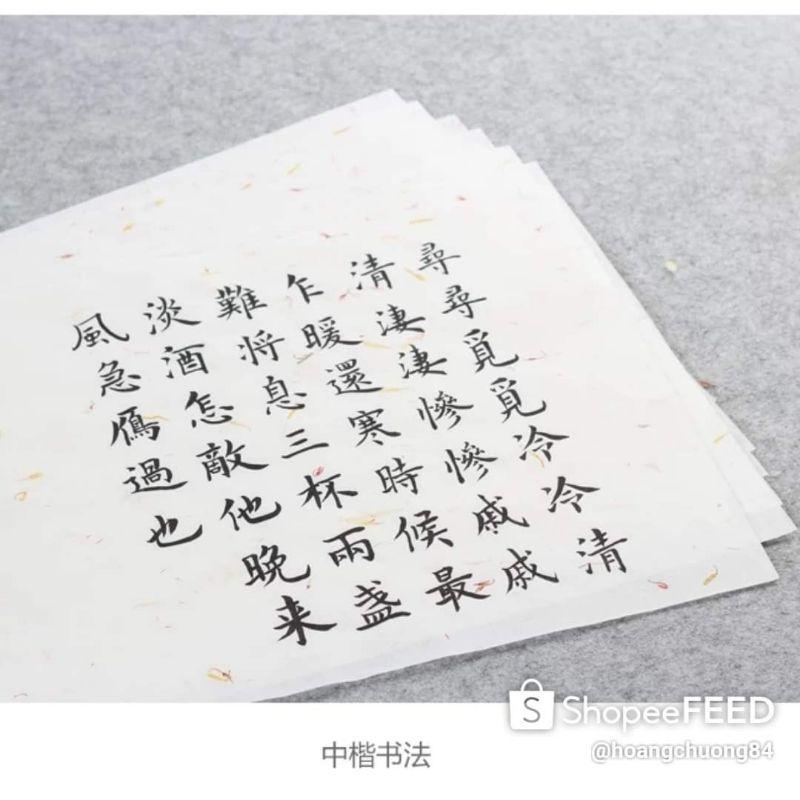 尋尋覓覓冷冷清
清淒淒慘慘戚戚
乍暖還寒時候最
難將息三杯兩盞
淡酒怎敵他晚来
風急鴈過也
ShopeeFEED
@hoangchuong84
中楷书法